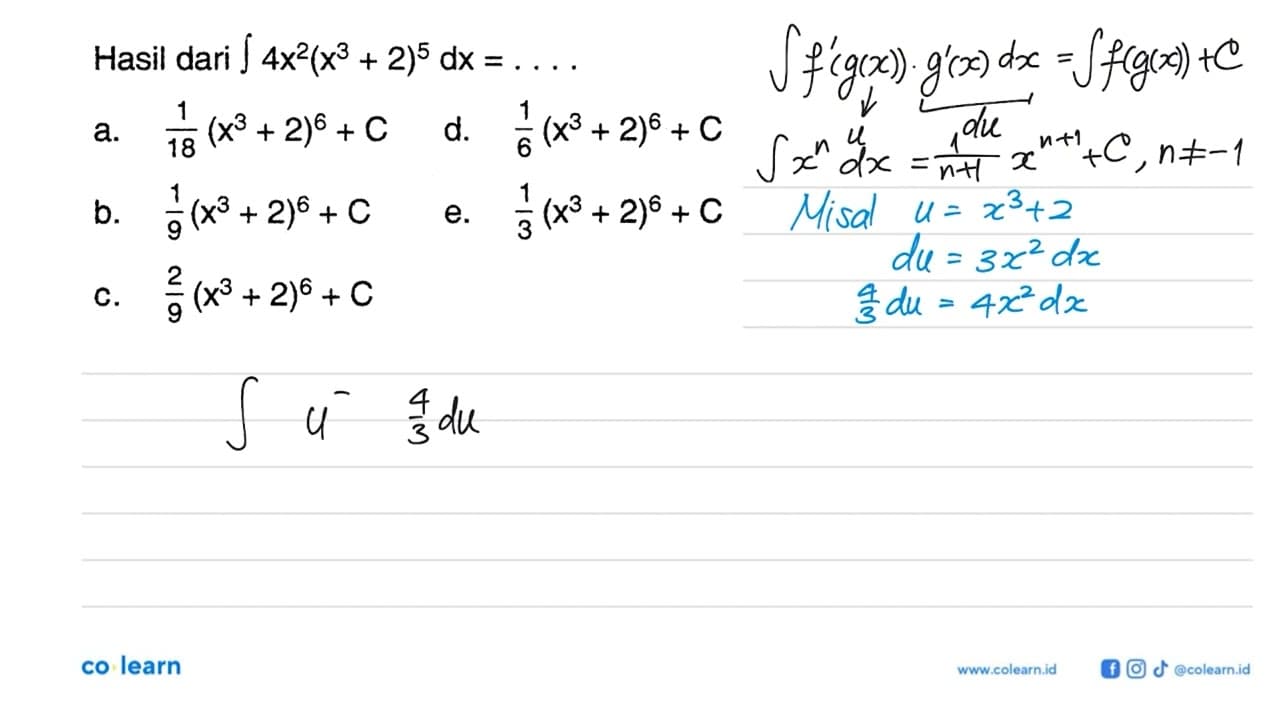 Hasil dari ∫ 4x²(x³ + 2)⁵ dx = . . . .
a. 1/18 (x³ + 2)⁶ + C
b. 1/9 (x³ + 2)⁶ + C
c. 2/9 (x³ + 2)⁶ + C
d. 1/6 (x³ + 2)⁶ + C
e. 1/3 (x³ + 2)⁶ + C
∫ f'(g(x)) · g'(x) dx = ∫ f(g(x)) + C
u du
∫ xⁿ dx = 1/(n+1) xⁿ⁺¹ + C, n ≠ -1
Misal u = x³ + 2
du = 3x² dx
4/3 du = 4x² dx
∫ u⁻ 4/3 du
co learn
www.colearn.id
@colearn.id